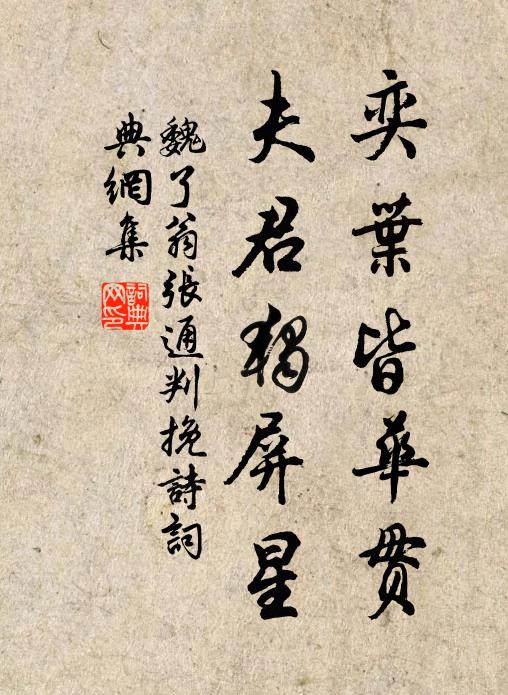 奕葉皆華貫
夫君獨屏星
魏了翁張通判挽詩詞
典網集
詞典網印